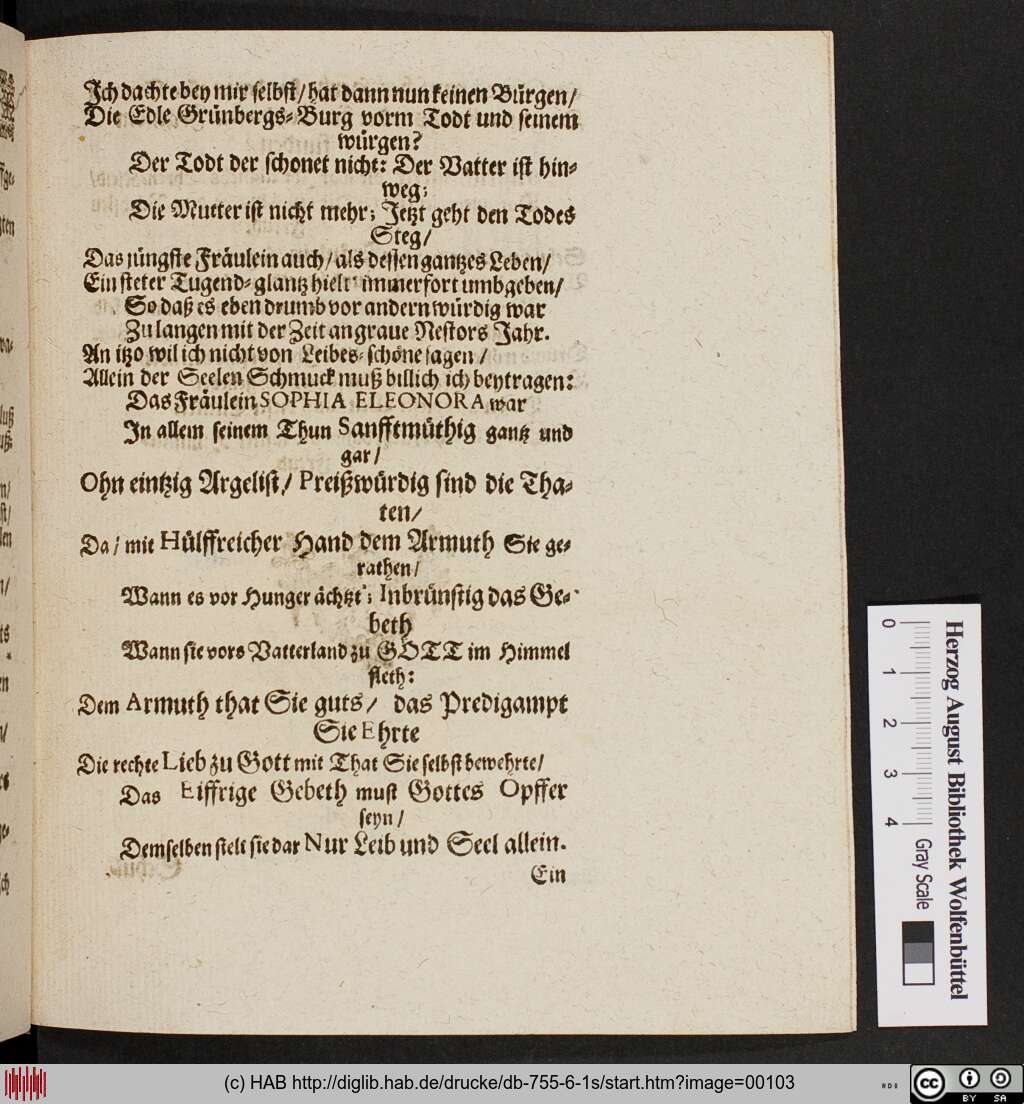 Ich dachte bey mir selbst/ hat dann nun keinen Bürgen/
Die Edle Grünbergs-Burg vorm Todt und seinem
würgen?
Der Todt der schonet nicht: Der Vatter ist hin-
weg;
Die Mutter ist nicht mehr; Jetzt geht den Todes
Steg/
Das jüngste Fräulein auch/ als dessen gantzes Leben/
Ein steter Tugend-glantz hielt immerfort umbgeben/
So daß es eben drumb vor andern würdig war
Zu langen mit der Zeit an graue Nestors Jahr.
An itzo wil ich nicht von Leibes-schöne sagen/
Allein der Seelen Schmuck muß billich ich beytragen:
Das Fräulein SOPHIA ELEONORA war
In allem seinem Thun Sanfftmüthig gantz und
gar/
Ohn eintzig Argelist/ Preißwürdig sind die Tha-
ten/
Da/ mit Hülffreicher Hand dem Armuth Sie ge-
rathen/
Wann es vor Hunger ächtzt; Inbrünstig das Ge-
beth
Wann sie vors Vatterland zu GOTT im Himmel
fleth:
Dem Armuth that Sie guts/ das Predigampt
Sie Ehrte
Die rechte Lieb zu Gott mit That Sie selbst bewehrte/
Das Eiffrige Gebeth must Gottes Opffer
seyn/
Demselben stelt sie dar Nur Leib und Seel allein.
Ein
Herzog August Bibliothek Wolfenbüttel
0 1 2 3 4 Gray Scale
(c) HAB http://diglib.hab.de/drucke/db-755-6-1s/start.htm?image=00103
cc BY SA